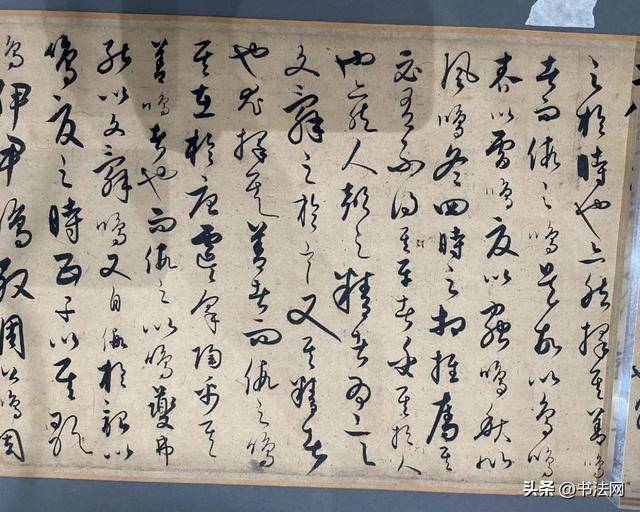 之於時也亦然擇其善鳴
者而假之鳴是故以鳥鳴
春以雷鳴夏以蟲鳴秋以
風鳴冬四時之相推奪其
必有不得其平者乎其於人
也亦然人聲之精者為言
文辭之於言又其精者
也尤擇其善者而假之鳴
其在於唐虞咎陶禹其
善鳴者也而假之以鳴夔弗
能以文辭鳴又自假於韶以
鳴夏之時五子以其歌
鳴伊尹鳴殷周公鳴周
头条 @书法网